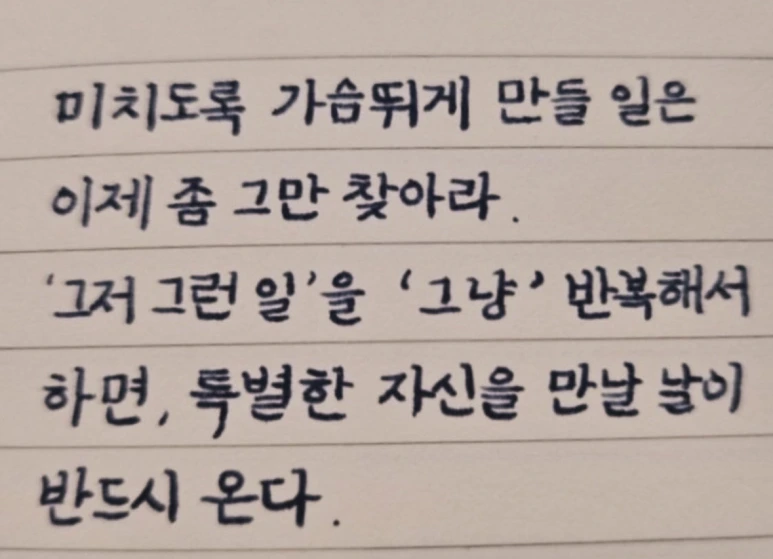 미치도록 가슴뛰게 만들 일은
이제 좀 그만 찾아라.
'그저 그런 일'을 '그냥' 반복해서
하면, 특별한 자신을 만날 날이
반드시 온다.